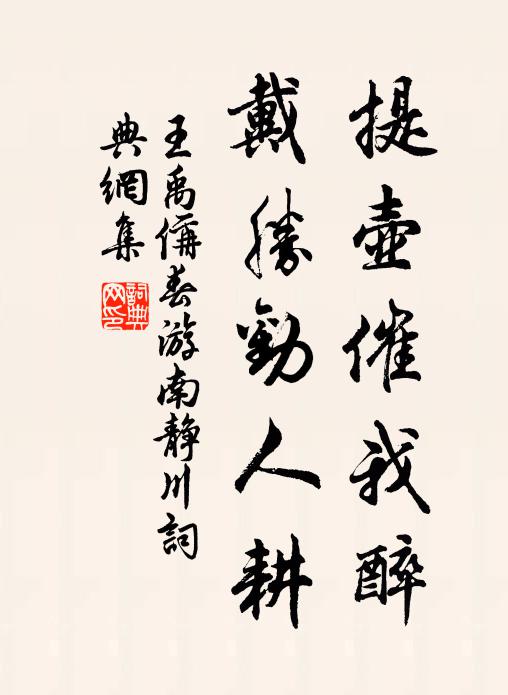 提壺催我醉
戴勝勸人耕
王禹偁春游南靜川詞
典網集
詞典網印